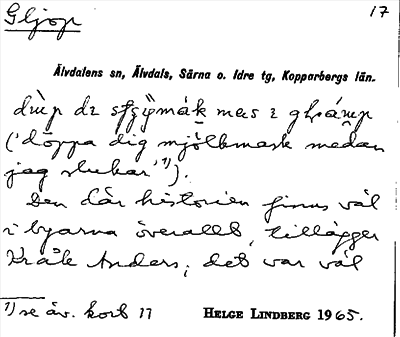 Gljop
17
Älvdalens sn, Älvdals, Särna o. Idre tg, Kopparbergs län.
dùp dɪ mas ɪ
('döppa dig mjölkmask medan
jag slukar' ¹⁾).
Den där historien finns väl
i byarna överallt, tillägger
Kråk Anders; det var väl
¹⁾ se äv. kort 17
HELGE LINDBERG 1965.